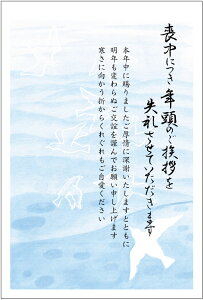 喪中につき年頭のご挨拶を
失礼させていただきます
本年中に賜りましたご厚情に深謝いたしますとともに
明年も変わらぬご交誼を謹んでお願い申し上げます
寒さに向かう折からくれぐれもご自愛ください